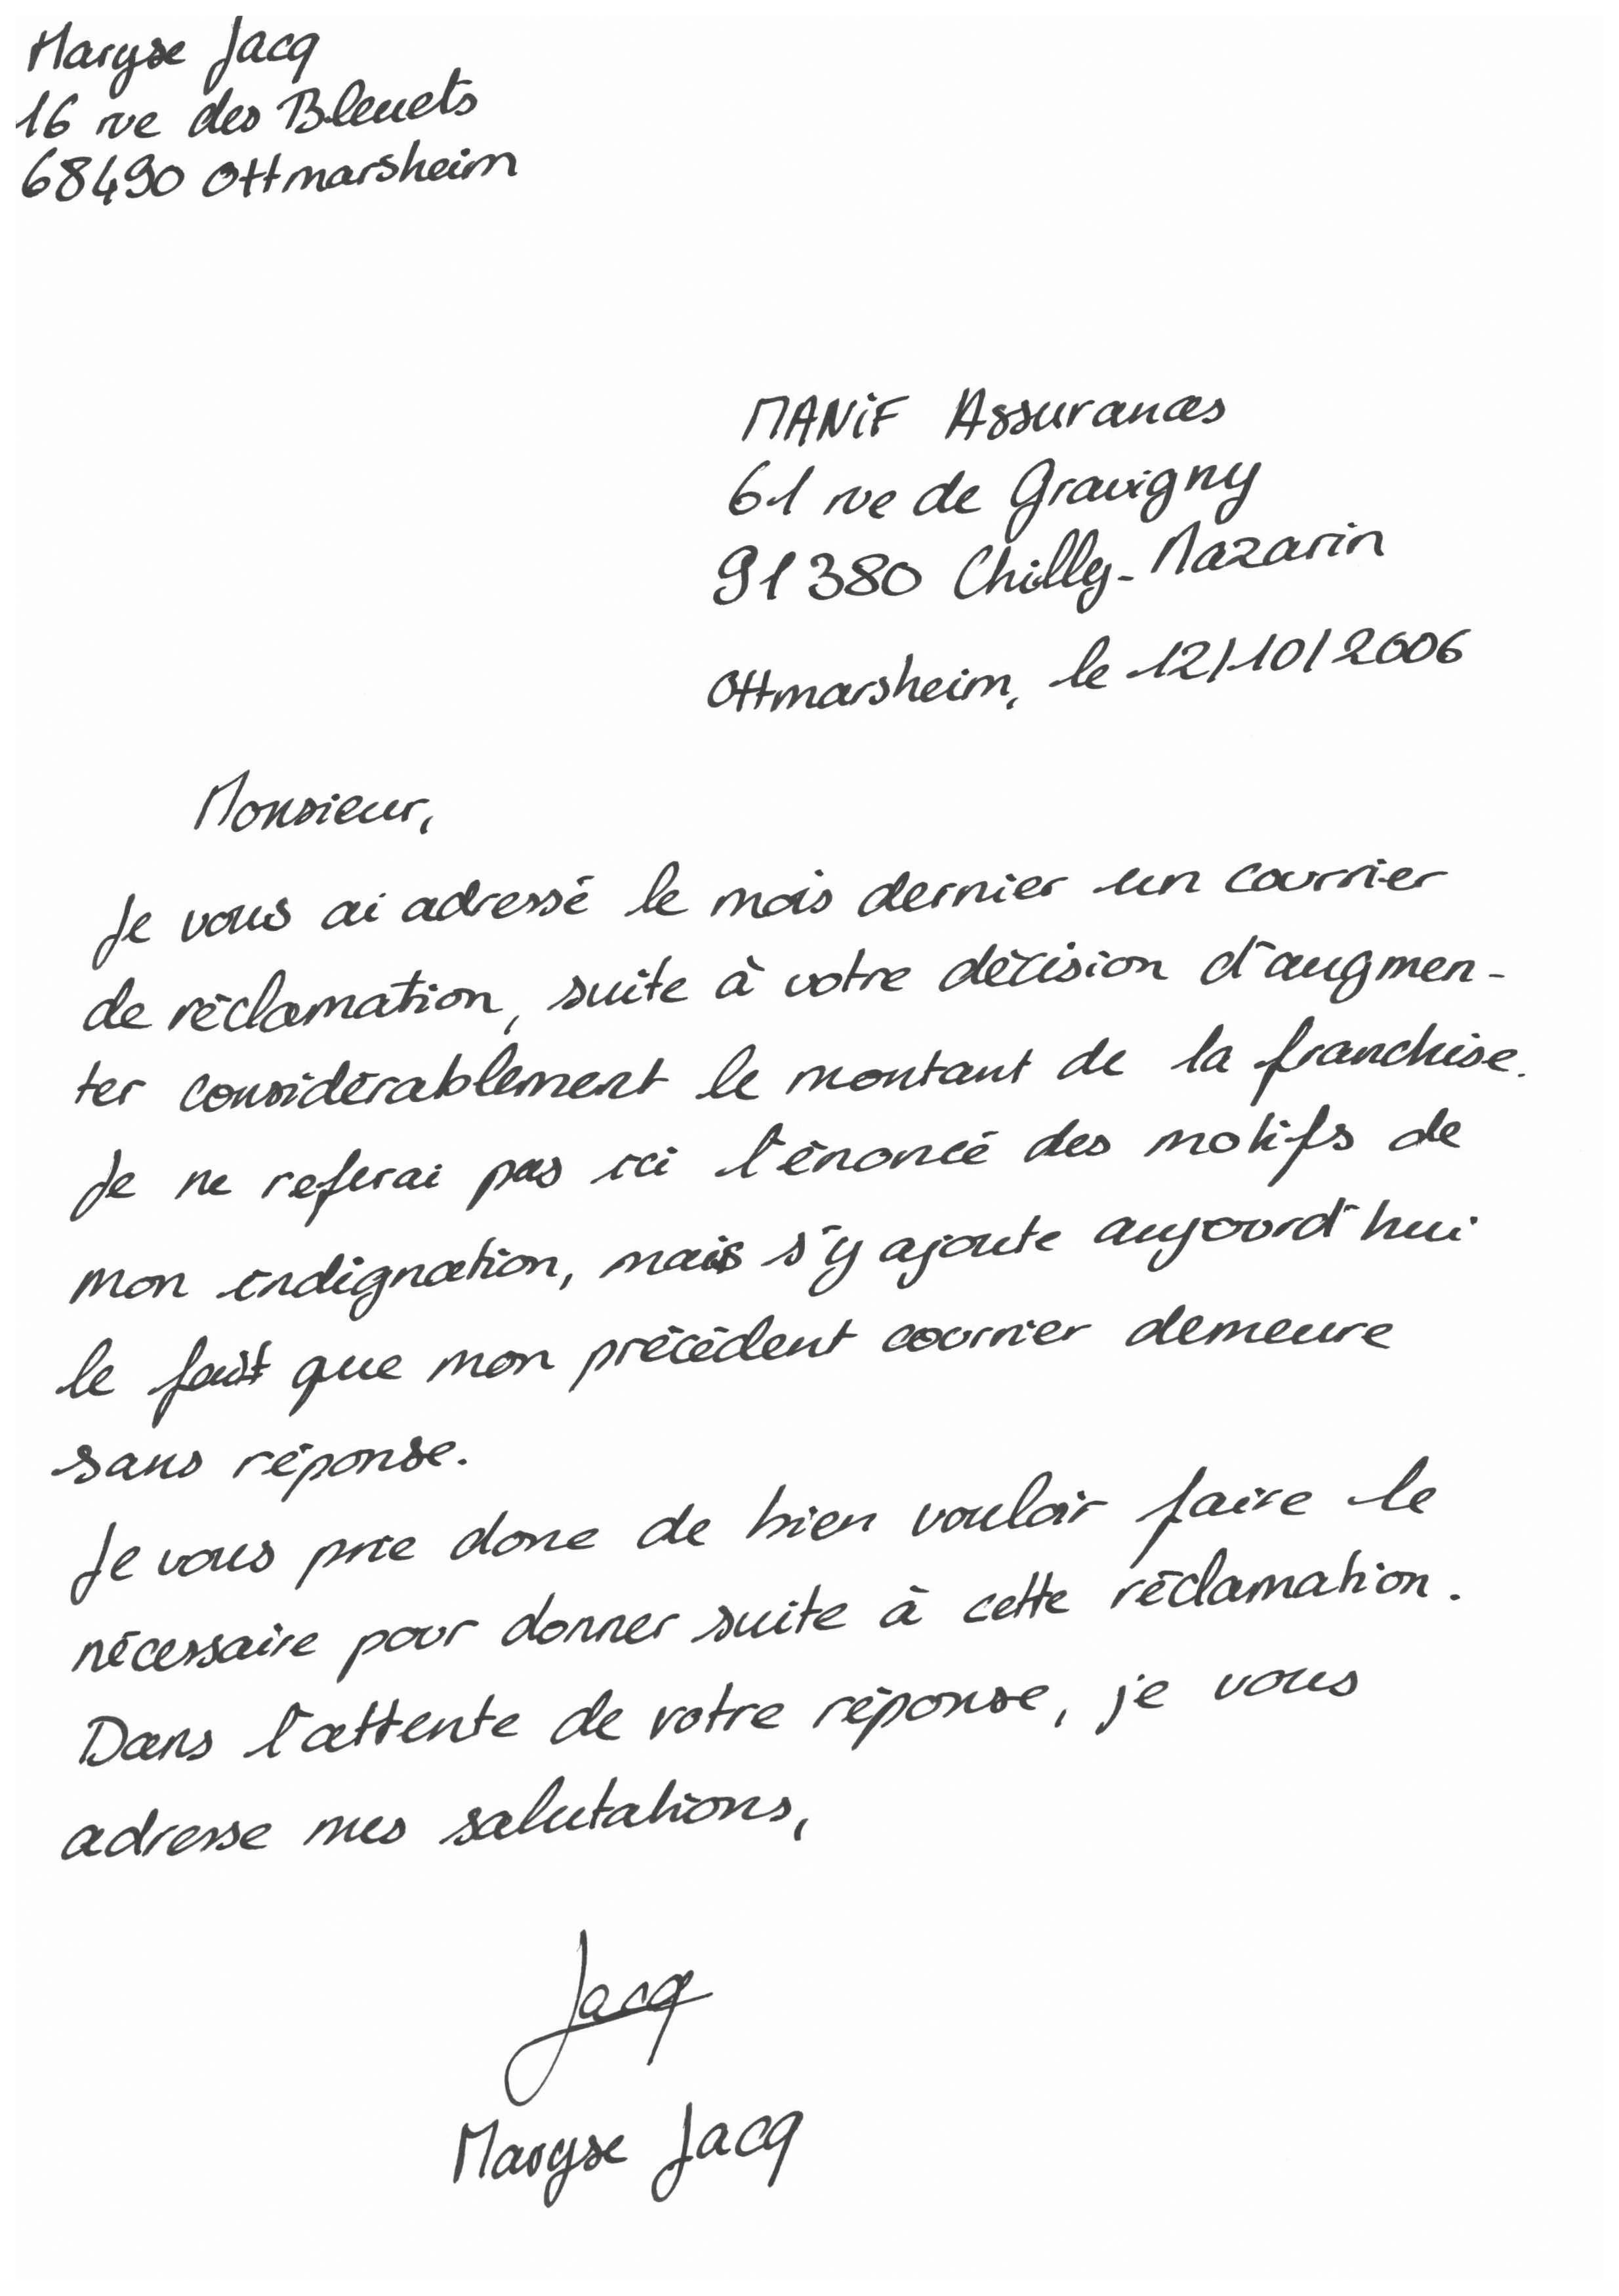 Maryse Jacq
16 rue des Bleuets
68490 Ottmarsheim
MANIF Assurances
61 rue de Gravigny
91380 Chilly-Mazarin
Ottmarsheim, le 12/10/2006
Monsieur,
Je vous ai adressé le mois dernier un courrier
de réclamation, suite à votre décision d'augmen-
ter considérablement le montant de la franchise.
Je ne referai pas ici l'énoncé des motifs de
mon indignation, mais s'y ajoute aujourd'hui
le fait que mon précédent courrier demeure
sans réponse.
Je vous prie donc de bien vouloir faire le
nécessaire pour donner suite à cette réclamation.
Dans l'attente de votre réponse, je vous
adresse mes salutations,
Jacq
Maryse Jacq